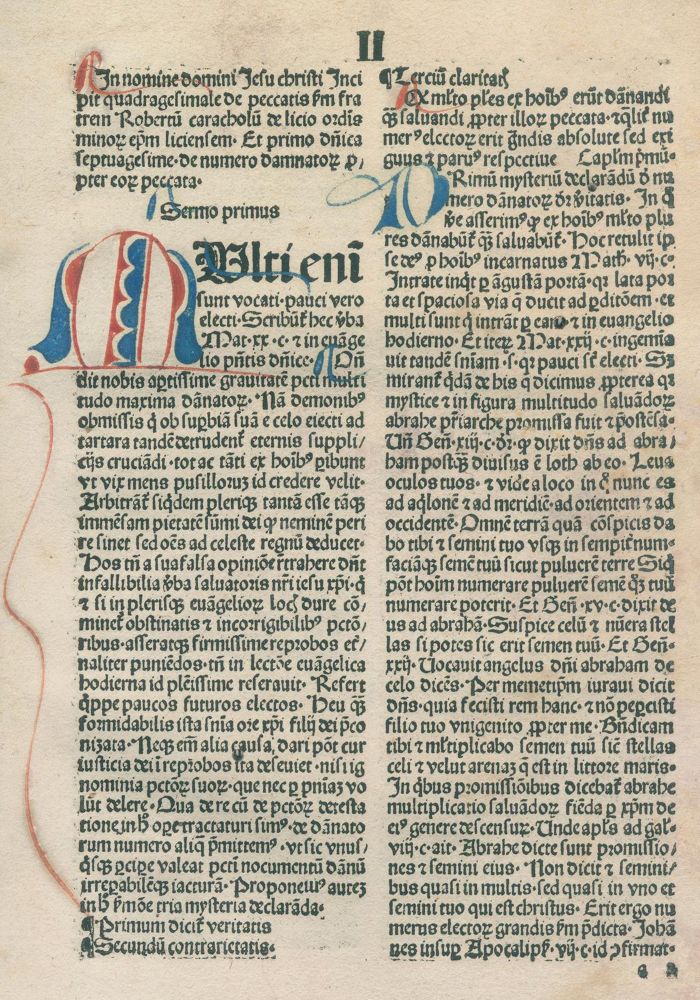 II
In nomine domini Jesu christi Inci
pit quadragesimale de peccatis ẜm fra
trem Robertū caracholū de licio ordīs
minorꝝ ep̄m liciensem. Et primo dñica
septuagesime. de numero damnatorꝝ ꝓ/
pter eorꝝ peccata.
Sermo primus
MUlti enī
sunt vocati. pauci vero
electi. Scribūt̄ hec ṽba
Mat. xx. c. ⁊ in euāge
lio p̄ntis dñice. Oñ
dit nobis aꝑtissime grauitatē pctī multi
tudo maxima dānatorꝝ. Nā demonibꝰ
obmissis q̇ ob suꝑbiā suā e celo eiecti ad
tartara tandē detrudent̄ eternis suppli/
cijs cruciādi. tot ac tāti ex hoībꝰ ꝑibunt
vt vix mens pusillorꝝ id credere velit.
Arbitrāt̄ siq̇dem pleriqꝫ tantā esse tāqꝫ
immēsam pietatē sūmi dei ꝙ neminē peri
re sinet sed oēs ad celeste regnū deducet.
Hos tñ a sua falsa opinióe r̄trahere dn̄t
infallibilia ṽba saluatoris nr̄i iesu xp̄i. q̇
⁊ si in plerisqꝫ euāgeliorꝝ locꝭ dure cō/
minet̄ obstinatis ⁊ incorrigibilibꝰ pctō/
ribus. asseratqꝫ firmissime reprobos et̄/
naliter puniēdos. tñ in lectōe euāgelica
hodierna id plēissime reserauit. Refert
q̇ppe paucos futuros electos. Heu qꝫ
formidabilis ista sñia ore xp̄i filij dei p̄co
nizata. Neqꝫ em̄ alia causa dari pōt cur
iusticia dei ī reprobos īta deseuiet. nisi ig
nominia pctōrꝝ suorꝝ. que nec ꝑ pñiaꝫ vo
lūt delere. Qua de re cū de pctōrꝝ detesta
tione in h̄ oꝑe tractaturi simꝰ. de dānato
rum numero aliq̇ p̄mittemꝰ. vt sic vnusꝰ/
q̇sqꝫ ꝑciꝑe valeat pctī nocumētū dānū
irreꝑabilēqꝫ iacturā. Proponetur autez
in h̄ ẜmōe tria mysteria declarāda.
¶Primum dicit̄ veritatis
¶Secundū contrarietatis.
¶Terciū claritatꝭ
EX ml̄to pl̄es ex hoībꝰ erūt dānandi
qꝫ saluandi ꝓpter illorꝝ peccata. ⁊ q̇lit̄ nu
merꝰ electorꝝ erit ḡndis absolute sed exi
guus ⁊ paruꝰ respectiue Capl̄m p̄mū.
PRimū mysteriū declarādū ð nu
mero dānatorꝝ dr̄ ṽitatis. In q̇
ꝟe asserimꝰ ꝙ ex hoībꝰ ml̄to plu
res dānabūt̄ qꝫ saluabūt̄. Hoc retulit ip
se deꝰ ꝓ hoībꝰ incarnatus Math. vij. c.
Intrate inq̇t ꝑ āgustā portā. qꝛ lata por
ta et spaciosa via q̄ ducit ad ꝑditōem. et
multi sunt q̇ intrāt ꝑ eam. ⁊ in euangelio
hodierno. Et iteꝝ Mat. xxij. c. ingemia
uit tandē sniam. s. qꝛ pauci st̄ electi. Sꝫ
mirant̄ q̇dā de his q̄ dicimus ꝓpterea qꝛ
mystice ⁊ in figura multitudo saluādorꝝ
abrahe pr̄iarche ꝓmissa fuit ⁊ p̄ostēsa.
Uñ Geñ. xiij. c. dr̄. ꝙ dixit dñs ad abra/
ham postqꝫ diuisus ē loth ab eo. Leua
oculos tuos. ⁊ vide a loco in q̇ nunc es
ad aq̇lonē ⁊ ad meridiē. ad orientem ⁊ ad
occidentē. Omnē terrā quā cōspicis da
bo tibi ⁊ semini tuo vsqꝫ in sempitnum.
faciāqꝫ semē tuū sicut puluerē terre Siq̇
pōt hoīm numerare puluerē semē qꝫ tuū
numerare poterit. Et Geñ. xv. c. dixit de
us ad abrahā. Suspice celū ⁊ nūera stel
las si potes sic erit semen tuū. Et Geñ.
xxij. Uocauit angelus dñi abraham de
celo dicēs. Per memetip̄m iuraui dicit
dñs. quia fecisti rem hanc. ⁊ nō peꝑcisti
filio tuo vnigenito ꝓpter me. Bñdicam
tibi ⁊ ml̄tiplicabo semen tuū sic̄ stellas
celi ⁊ velut arenaꝫ q̄ est in littore maris.
In q̇bus promissiōibus dicebat̄ abrahe
multiplicatio saluādorꝝ fiēda ꝑ xp̄m de
eiꝰ genere descensurꝝ. Unde apl̄us ad gal̄.
viij. c. ait. Abrahe dicte sunt promissio/
nes ⁊ semini eius. Non dicit ⁊ semini/
bus quasi in multis. sed quasi in vno et
semini tuo qui est christus. Erit ergo nu
merus electorꝝ grandis ẜm p̄dicta. Johā
nes insuꝑ Apocalip̄. vij. c. id ꝯfirmat.